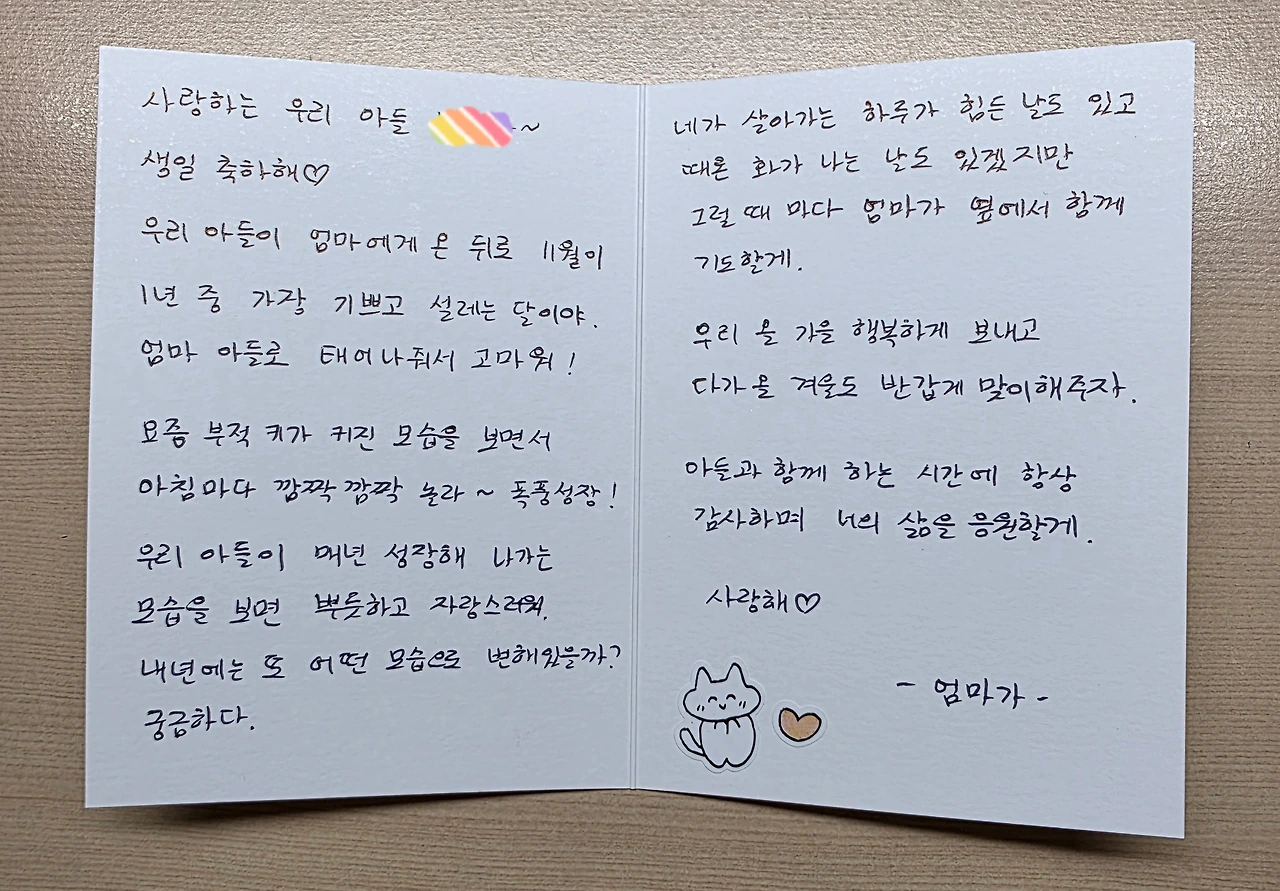 사랑하는 우리 아들 ~
생일 축하해♡
우리 아들이 엄마에게 온 뒤로 11월이
1년 중 가장 기쁘고 설레는 달이야.
엄마 아들로 태어나줘서 고마워!
요즘 부쩍 키가 커진 모습을 보면서
아침마다 깜짝깜짝 놀라~ 폭풍성장!
우리 아들이 매년 성장해 나가는
모습을 보면 뿌듯하고 자랑스러워.
내년에는 또 어떤 모습으로 변해있을까?
궁금하다.
네가 살아가는 하루가 힘든 날도 있고
때론 화가 나는 날도 있겠지만
그럴 때 마다 엄마가 옆에서 함께
기도할게.
우리 올 가을 행복하게 보내고
다가올 겨울도 반갑게 맞이해주자.
아들과 함께 하는 시간에 항상
감사하며 너의 삶을 응원할게.
사랑해♡
- 엄마가 -